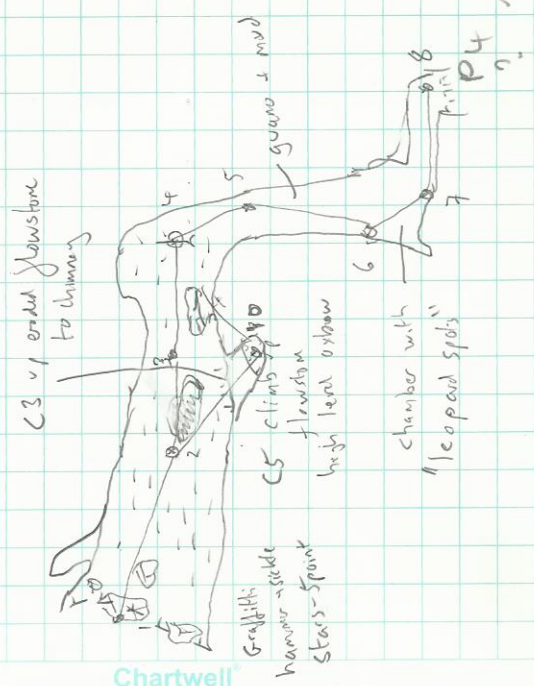 C3 up eroded flowstone
to chimney
4
5
guano + mud
8
P4
?
7
6
3
2
C5 climb up
flowstone
high level oxbow
chamber with
"leopard spots"
Graffitti
hammer + sickle
Stars - 5 point
Chartwell